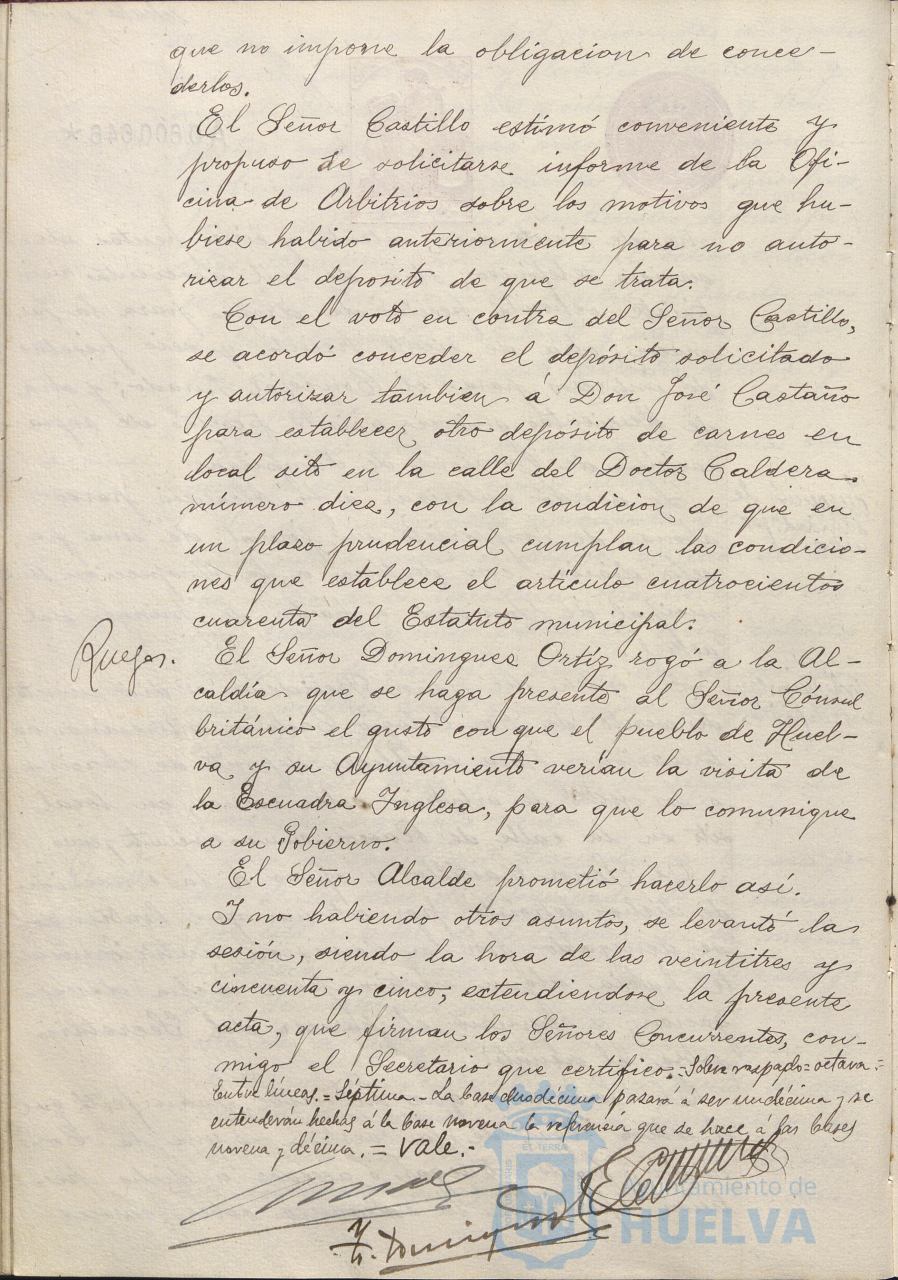 que no impone la obligacion de conce-
derlos.
El Señor Castillo estimó conveniente y
propuso se solicitarse informe de la Ofi-
cina de Arbitrios sobre los motivos que hu-
biese habido anteriormente para no auto-
rizar el deposito de que se trata.
Con el voto en contra del Señor Castillo,
se acordó conceder el depósito solicitado
y autorizar tambien á Don José Castaño
para establecer otro depósito de carnes en
local sito en la calle del Doctor Caldera
número diez, con la condicion de que en
un plazo prudencial cumplan las condicio-
nes que establece el artículo cuatrocientos
cuarenta del Estatuto municipal.
Ruegos.
El Señor Dominguez Ortíz rogó a la Al-
caldía que se haga presente al Señor Cónsul
británico el gusto con que el pueblo de Huel-
va y su Ayuntamiento verian la visita de
la Escuadra Inglesa, para que lo comunique
a su Gobierno.
El Señor Alcalde prometió hacerlo así.
Y no habiendo otros asuntos, se levantó la
sesión, siendo la hora de las veintitres y
cincuenta y cinco, extendiendose la presente
acta, que firman los Señores Concurrentes, con-
migo el Secretario que certifico.=Sobre raspado=octava.=
Entre líneas.=Séptima.-La base duodécima pasará á ser undécima y se
entenderán hechas á la base novena la referencia que se hace á las bases
novena y décima.=Vale.-
EL TERRÆ
Ayuntamiento de
HUELVA